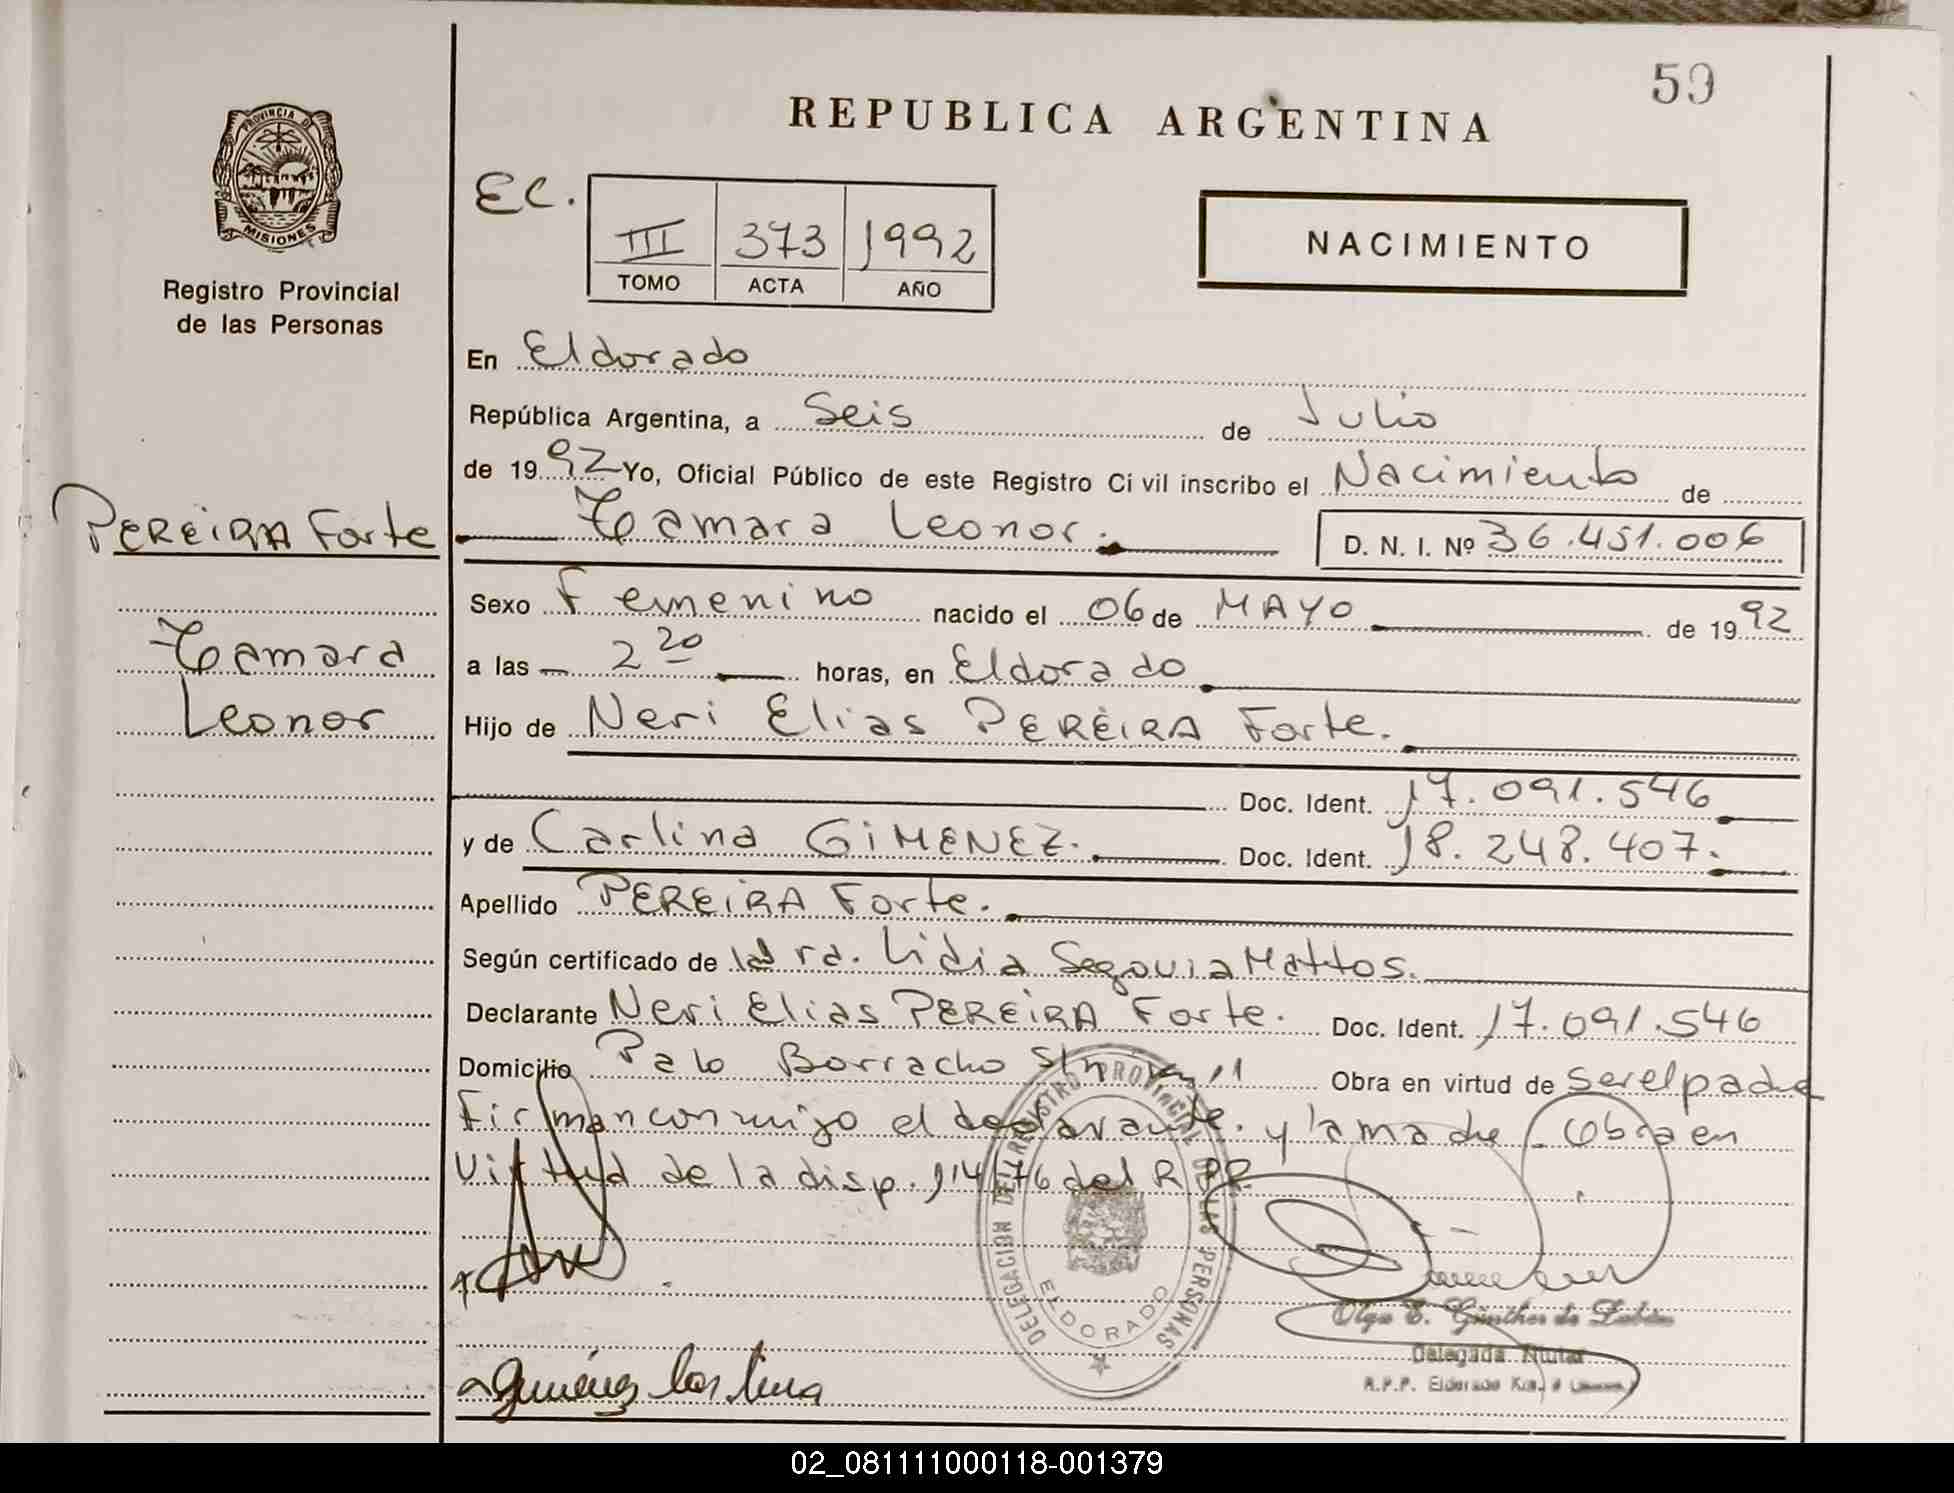 59
PROVINCIA DE
MISIONES
Registro Provincial
de las Personas
REPUBLICA ARGENTINA
EC.
III 373 1992
TOMO ACTA AÑO
NACIMIENTO
En Eldorado
República Argentina, a Seis de Julio
de 1992 Yo, Oficial Público de este Registro Civil inscribo el Nacimiento de
PEREIRA Forte Tamara Leonor. D. N. I. Nº 36.451.006
Sexo Femenino nacido el 06 de MAYO de 1992
Tamara
a las 2 20 horas, en Eldorado
Leonor
Hijo de Neri Elias PEREIRA Forte.
Doc. Ident. 17.091.546
y de Carlina GIMENEZ. Doc. Ident. 18.248.407.
Apellido PEREIRA Forte.
Según certificado de la Dra. Lidia Segovia Mattos.
Declarante Neri Elias PEREIRA Forte. Doc. Ident. 17.091.546
Domicilio Palo Borracho S/n Obra en virtud de ser el padre
Firman conmigo el declarante. y la madre. Obra en
Virtud de la disp. 914/76 del R.P.P.
DELEGACION DEL REGISTRO PROVINCIAL DE LAS PERSONAS
ELDORADO
Olga E. Günther de
Delegada Titular
R.P.P. Eldorado Km.
Giménez Carlina
02_081111000118-001379